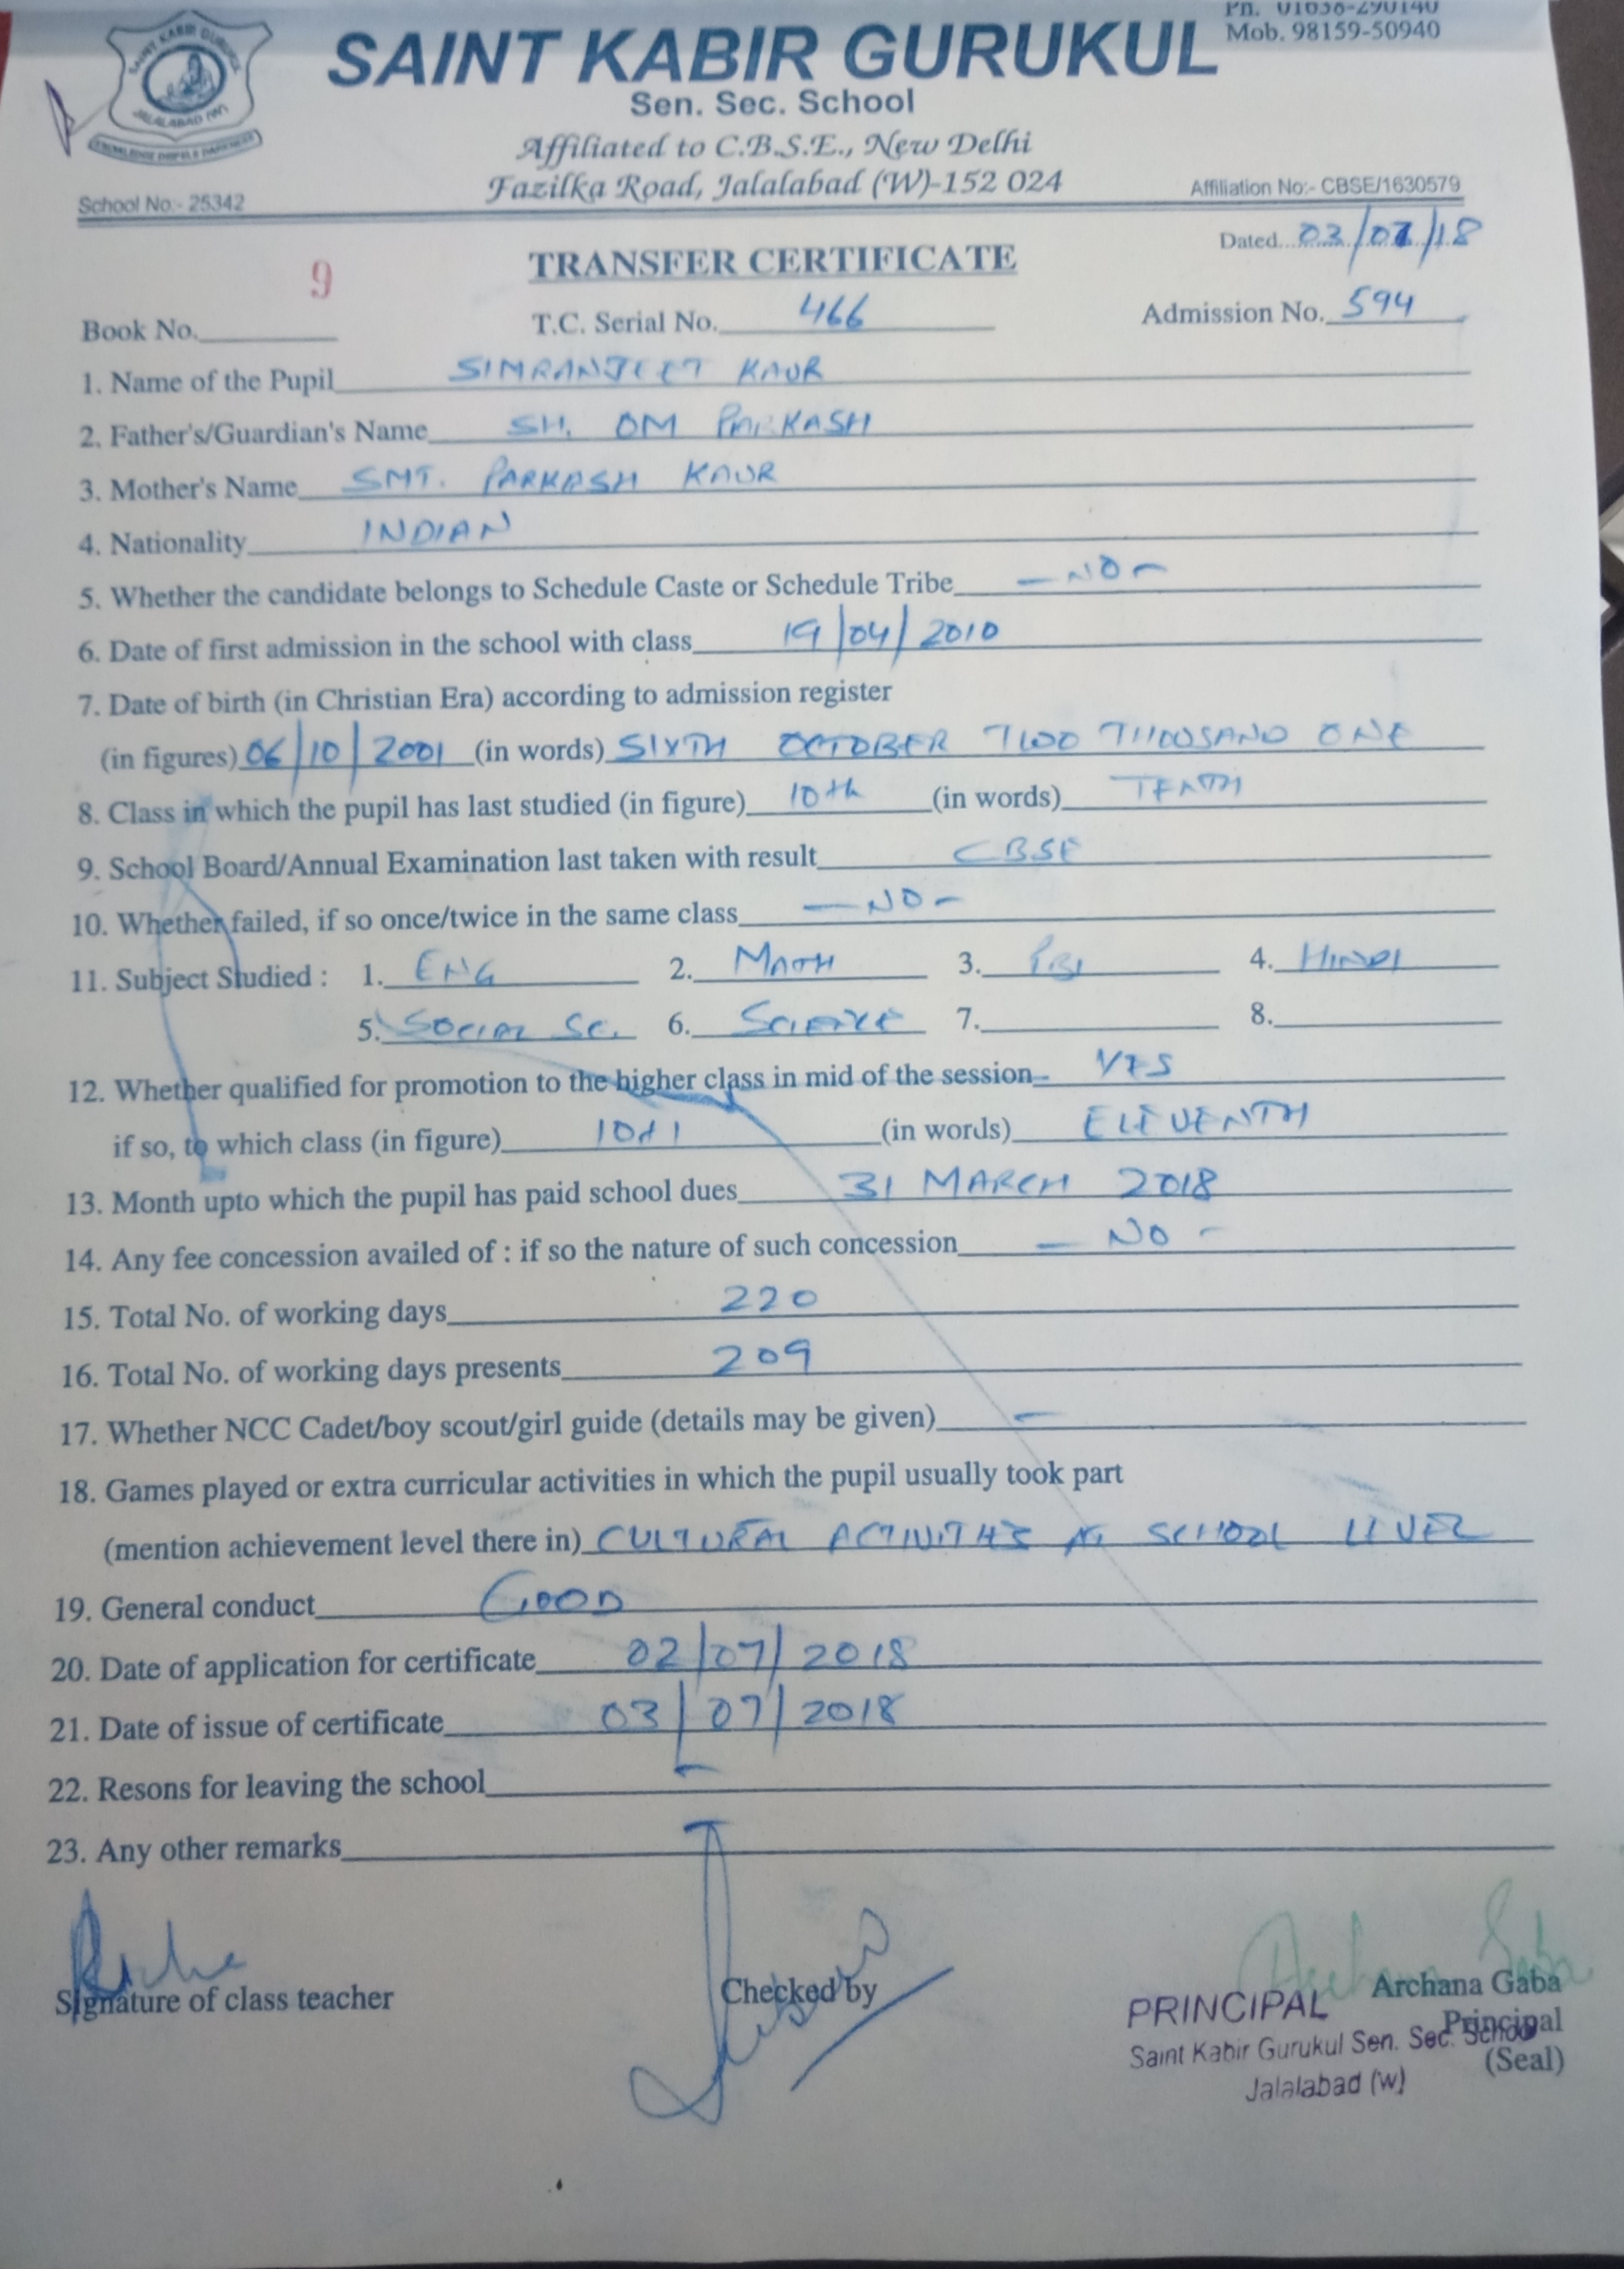 Ph. 01638-290140
Mob. 98159-50940
SAINT KABIR GURUKUL
JALALABAD (W)
SAINT KABIR GURUKUL
Sen. Sec. School
Affiliated to C.B.S.E., New Delhi
Fazilka Road, Jalalabad (W)-152 024
School No:- 25342
Affiliation No:- CBSE/1630579
Dated...03/07/18
TRANSFER CERTIFICATE
Book No. 9 T.C. Serial No. 466 Admission No. 594
1. Name of the Pupil SIMRANJEET KAUR
2. Father's/Guardian's Name SH. OM PARKASH
3. Mother's Name SMT. PARKASH KAUR
4. Nationality INDIAN
5. Whether the candidate belongs to Schedule Caste or Schedule Tribe — NO -
6. Date of first admission in the school with class 19/04/2010
7. Date of birth (in Christian Era) according to admission register
(in figures) 06/10/2001 (in words) SIXTH OCTOBER TWO THOUSAND ONE
8. Class in which the pupil has last studied (in figure) 10th (in words) TENTH
9. School Board/Annual Examination last taken with result CBSE
10. Whether failed, if so once/twice in the same class — NO -
11. Subject Studied : 1. ENG 2. MATH 3. PBI 4. HINDI
5. SOCIAL SC. 6. SCIENCE 7. 8.
12. Whether qualified for promotion to the higher class in mid of the session YES
if so, to which class (in figure) 10+1 (in words) ELEVENTH
13. Month upto which the pupil has paid school dues 31 MARCH 2018
14. Any fee concession availed of : if so the nature of such concession — NO -
15. Total No. of working days 220
16. Total No. of working days presents 209
17. Whether NCC Cadet/boy scout/girl guide (details may be given) —
18. Games played or extra curricular activities in which the pupil usually took part
(mention achievement level there in) CULTURAL ACTIVITIES AT SCHOOL LEVEL
19. General conduct GOOD
20. Date of application for certificate 02/07/2018
21. Date of issue of certificate 03/07/2018
22. Resons for leaving the school —
23. Any other remarks
Signature of class teacher
Checked by
Archana Gaba
Principal
(Seal)
PRINCIPAL
Saint Kabir Gurukul Sen. Sec. School
Jalalabad (W)